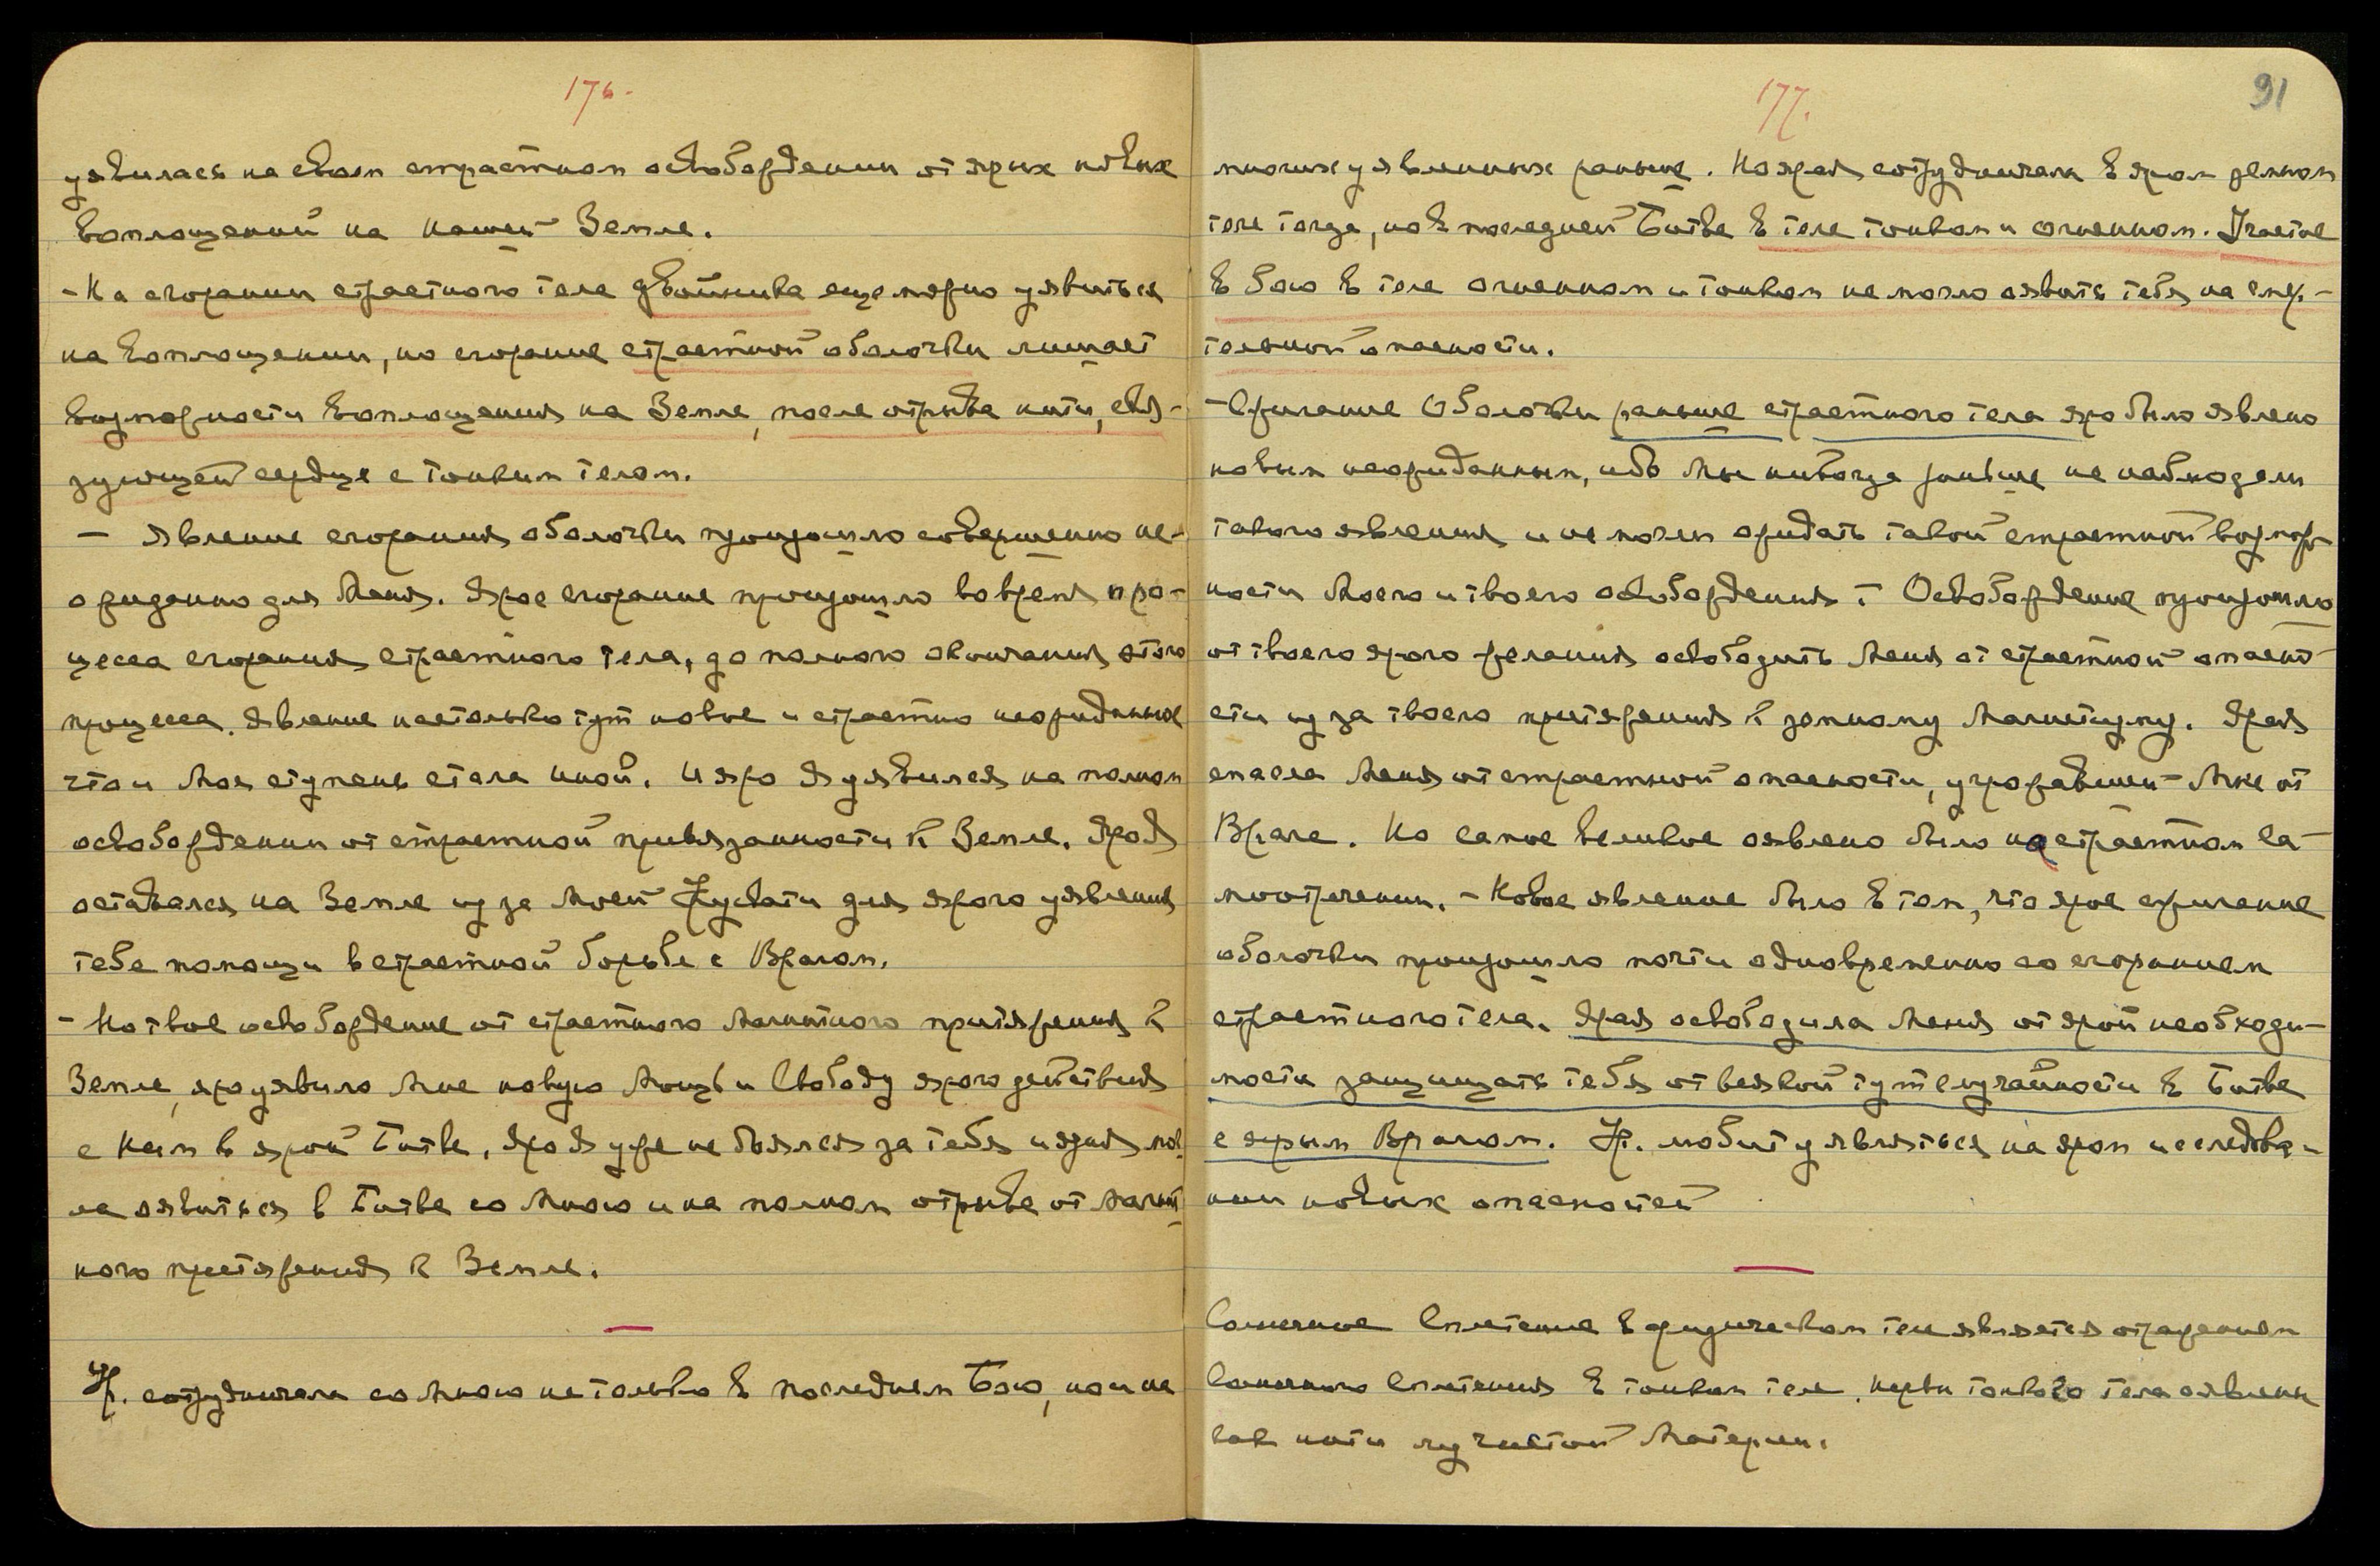 176.
уявилась на своем страстном освобождении от ярых новых
воплощений на нашей Земле.
- На сгорании страстного тела двойника еще можно уявиться
на воплощении, но сгорание страстной оболочки лишает
возможности воплощения на Земле, после отрыва нити, свя-
зующей сердце с тонким телом.
- Явление сгорания оболочки произошло совершенно не-
ожиданно для Меня. Ярое сгорание произошло во время про-
цесса сгорания страстного тела, до полного окончания этого
процесса. Явление настолько тут новое и страстно неожиданное
что и Моя ступень стала иной. И яро Я уявился на полном
освобождении от страстной привязанности к Земле. Яро Я
оставался на Земле из за Моей для ярого уявления
тебе помощи в страстной борьбе с Врагом.
- Но твое освобождение от страстного магнитного притяжения к
Земле, яро уявило Мне новую Мощь и Свободу ярого действия
с Ним в ярой Битве. Яро Я уже не боялся за тебя и ярая мог-
ла оявиться в Битве со Мною и на полном отрыве от магнит-
ного притяжения к Земле.
Ур. сотрудничала со Мною не только в последнем Бою, но и на
177.
91
многих уявленных раньше. Но ярая сотрудничала в яром земном
теле тогда, но в последней Битве в теле тонком и огненном. Участие
в бою в теле огненном и тонком не могло оявить тебя на смер-
тельной опасности.
- Сжигание Оболочки раньше страстного тела яро было явлено
новым неожиданным, ибо Мы никогда раньше не наблюдали
такого явления и не могли ожидать такой страстной возмож-
ности Моего и твоего освобождения. Освобождение произошло
от твоего ярого желания освободить Меня от страстной опасно-
сти из за твоего притяжения к земному Магнетизму. Ярая
спасла Меня от страстной опасности, угрожавшей Мне от
Врага. Но самое великое оявлено было на страстном са-
моотречении. - Новое явление было в том, что ярое сжигание
оболочки произошло почти одновременно со сгоранием
страстного тела. Ярая освободила Меня от ярой необходи-
мости защищать тебя от всякой тут случайности в Битве
с ярым Врагом. Ур. любит уявляться на яром исследова-
нии новых опасностей
Солнечное Сплетение в физическом теле является отражением
Солнечного Сплетения в тонком теле, нервы тонкого тела оявлены
как нити лучистой Материи.